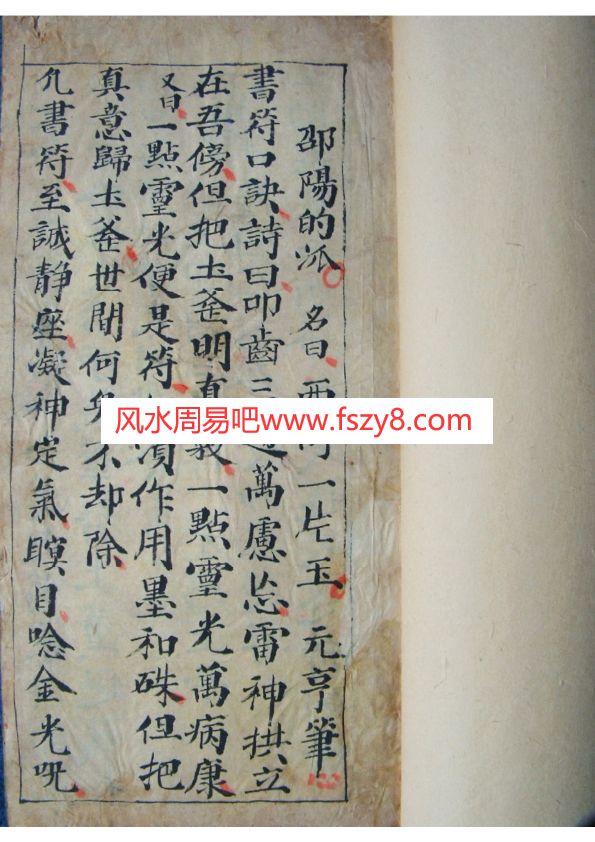 邵陽的派 名曰 一片玉 元亨筆
書符口訣詩曰叩齒三萬慮忘雷神拱立
在吾傍但把土釜明一點靈光萬病康
又曰一點靈光便是符須作用墨和硃但把
真意歸土釜世間何不却除
凢書符至誠静座凝神定氣瞑目唸金光咒
风水周易吧www.fszy8.com